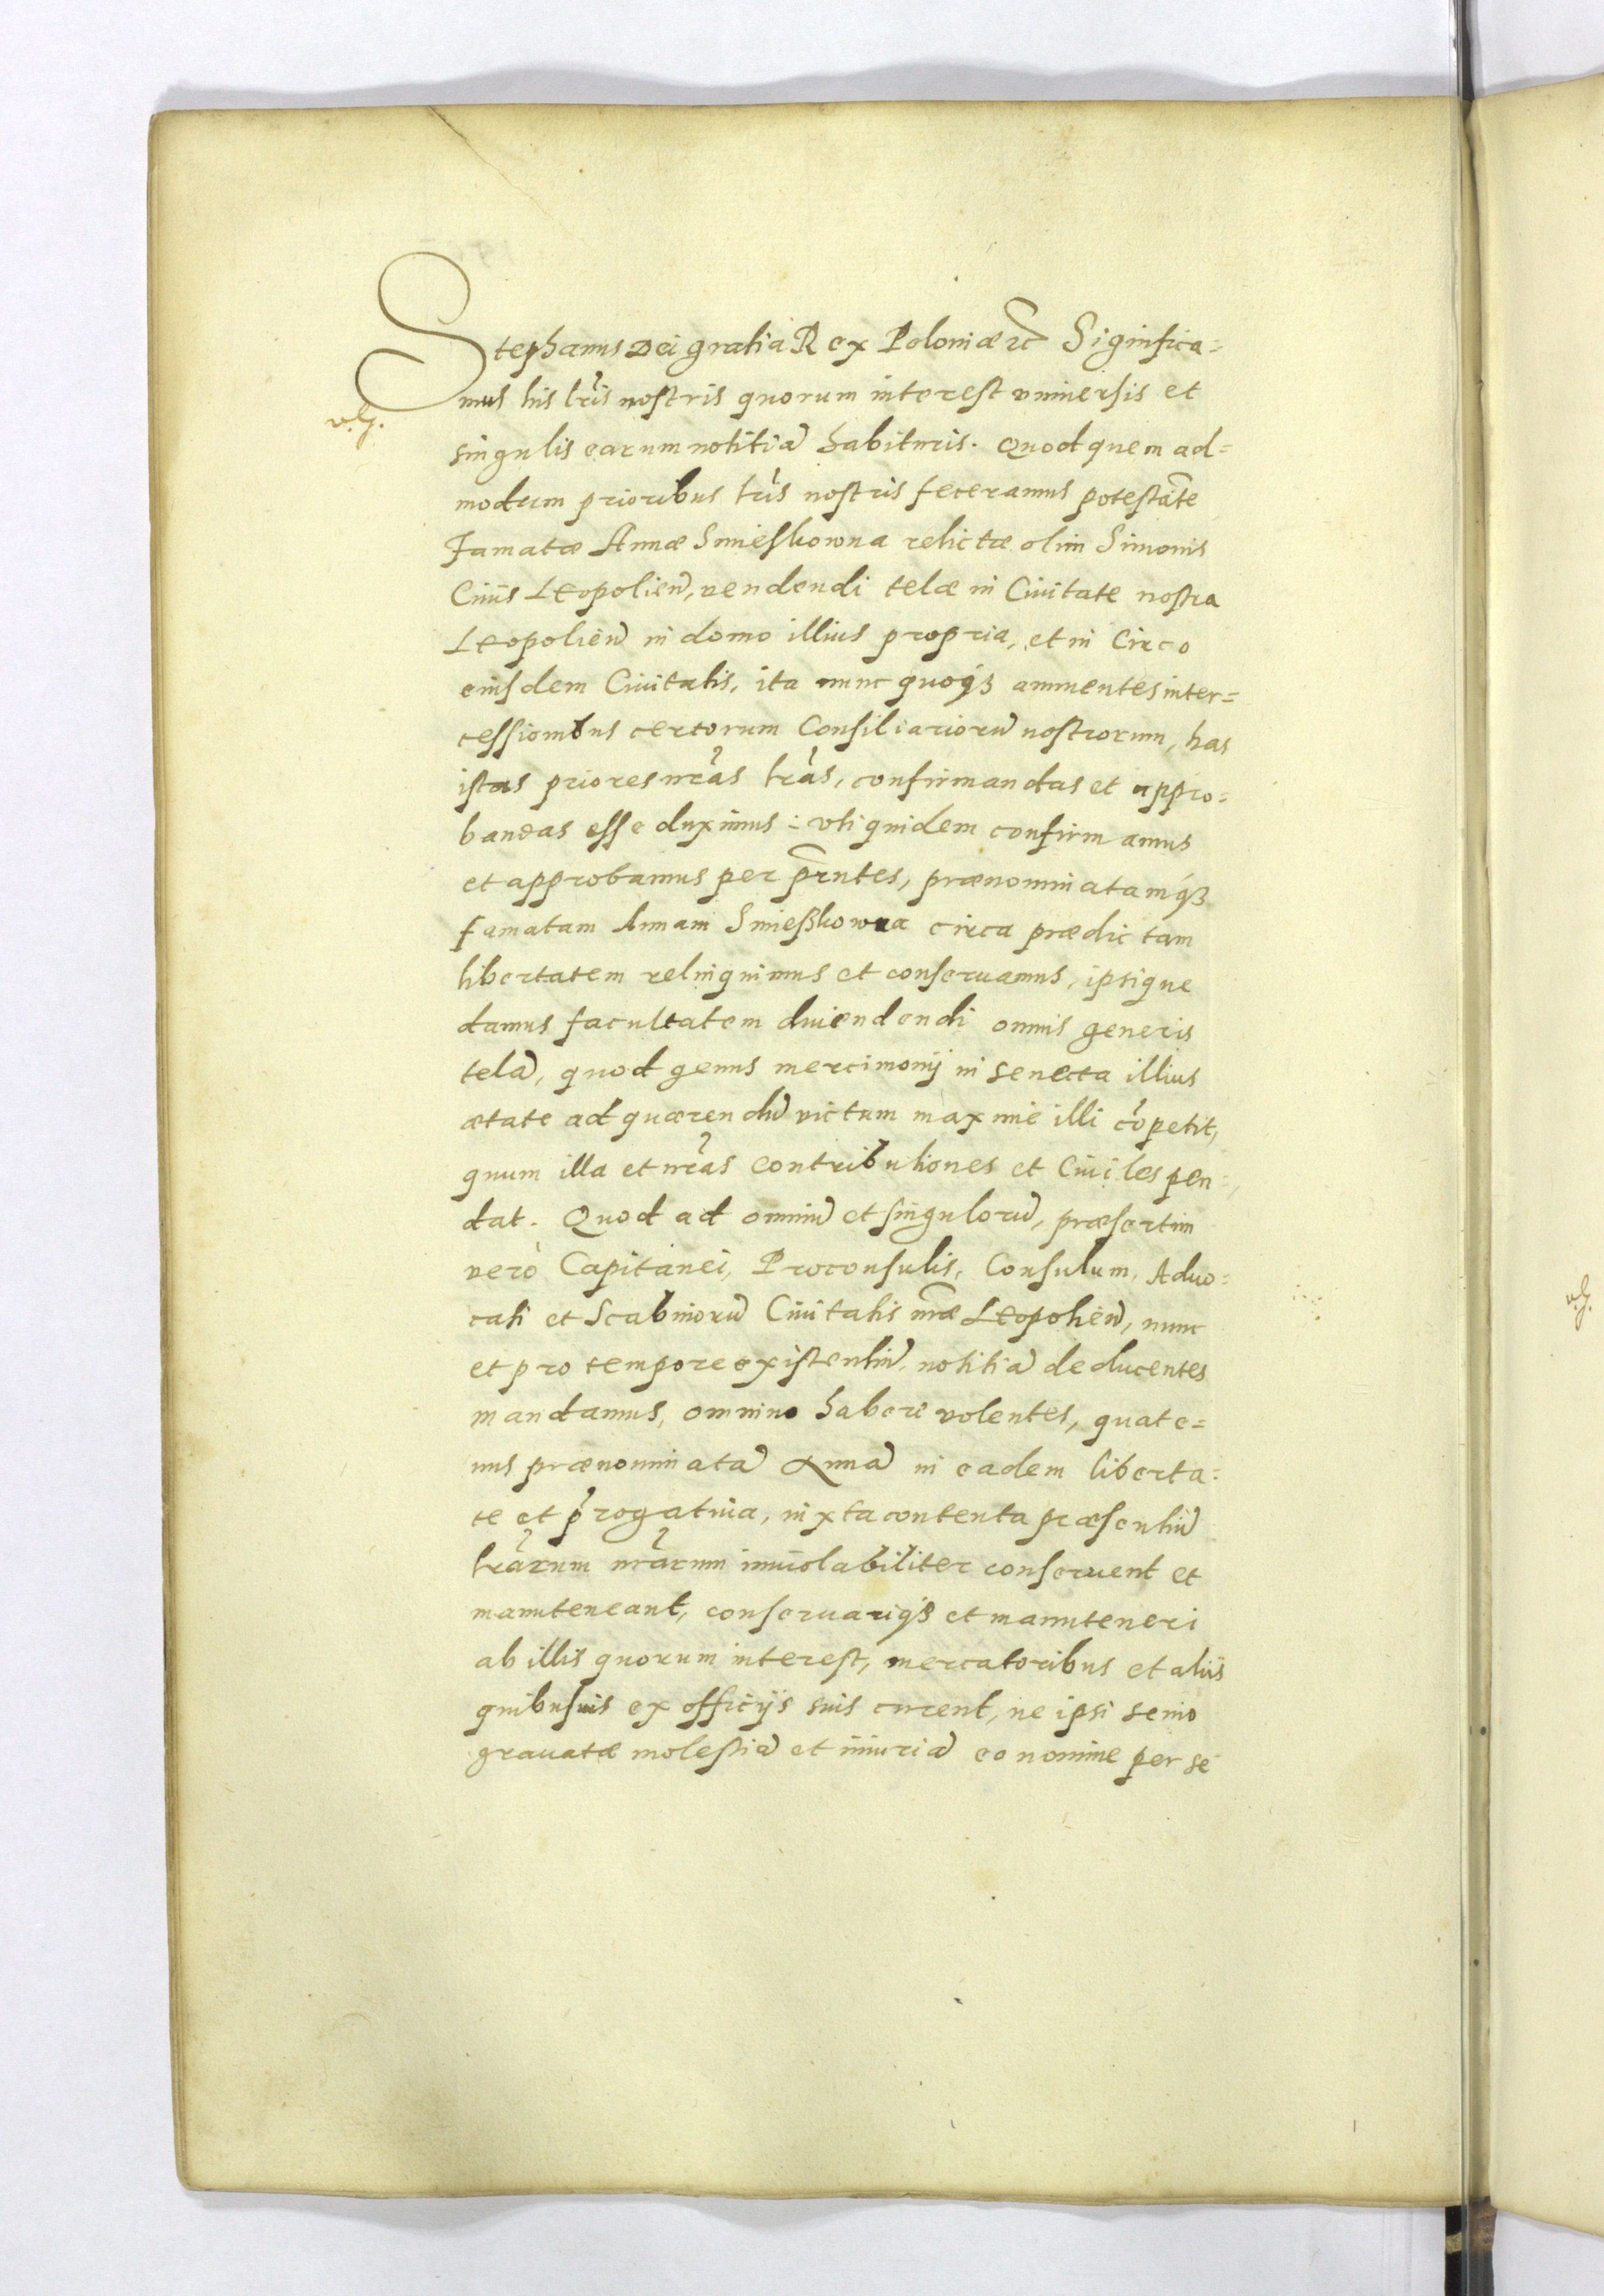 Stephanus Dei gratia Rex Poloniæ &c̃ Significa=
mus his lr̃is nostris quorum interest vniuersis et
v.g.
singulis earum notitiã habituris. Quod quem ad=
modum prioribus lr̃is nostris feceramus potestãte
Famatæ Annæ Smieskowna relictæ olim Simonis
Ciuis Leopolieñ, vendendi telæ in Ciuitate nostra
Leopolieñ in domo illius propria, et in Circo
eiusdem Ciuitatis, ita nunc quoqȝ annuentes inter=
cessionibus certorum Consiliariorũ nostrorum, has
istas priores nr̃as lr̃as, confirmandas et appro=
bandas esse duximus: vti quidem confirmamus
et approbamus per pr̃ntes, prænominatamqȝ
famatam Annam Smieskowna circa prædictam
libertatem relinquimus et conseruamus, ipsique
damus facultatem diuendendi omnis generis
telã, quod genus mercimonij in senecta illius
ætate ad quærendũ victum maxime illi cõpetit,
quum illa et nr̃as contributiones et Ciuiles pen=
dat. Quod ad omniũ et singulorũ, præsertim
verò Capitanei, Proconsulis, Consulum, Aduo=
cati et Scabinorũ Ciuitatis nr̃æ Leopolieñ, nunc
et pro tempore existentiũ, notitiã deducentes
mandamus, omnino habere volentes, quate=
nus prænominatã Annã in eadem liberta=
te et p̃rogatiua, iuxta contenta præsentiũ
lr̃arum nr̃arum inuiolabiliter conseruent et
manuteneant, conseruariqȝ et manuteneri
ab illis quorum interest, mercatoribus et alijs
quibusuis ex officijs suis curent, ne ipsi senio
grauatæ molestiã et iniuriã eo nomine per se
v.g.